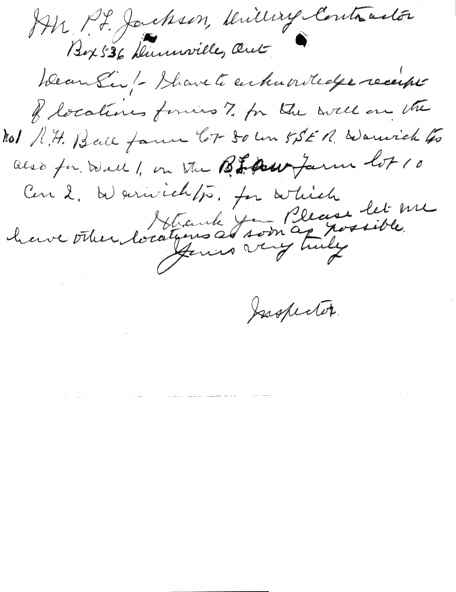 Mr P.L. Jackson, Drilling Contractor
Box 536 Dunnville, Ont
Dear Sir!- I have to acknowledge receipt
of locations forms 7. for the well on the
No 1 R.H. Ball farm lot 30 Con 5 S E R. Warwick Tp
also for Well 1, on the farm lot 10
Con 2. Warwick Tp. for which
I thank you Please let me
have other locations as soon as possible.
Yours very truly
Inspector.